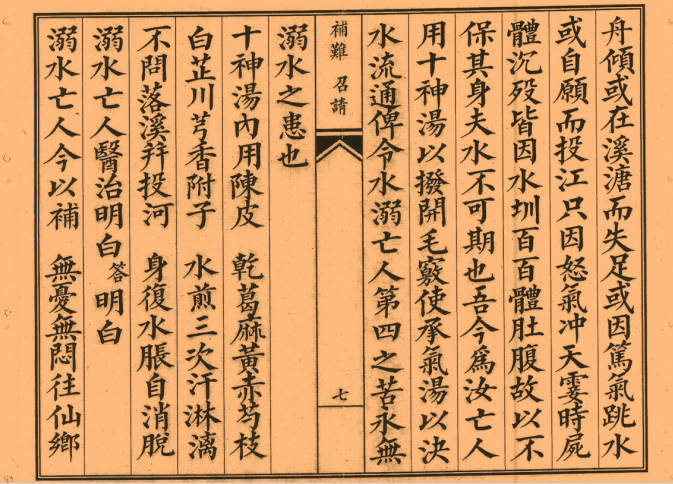 舟傾或在溪溏而失足或因篤氣跳水
或自願而投江只因怒氣冲天霎時屍
體沉歿皆因水圳百百體肚腹故以不
保其身夫水不可期也吾今爲汝亡人
用十神湯以撥開毛竅使承氣湯以決
水流通俾令水溺亡人第四之苦永無
補難 召請
七
溺水之患也
十神湯內用陳皮 乾葛麻黃赤芍枝
白芷川芎香附子 水煎三次汗淋漓
不問落溪并投河 身復水脹自消脫
溺水亡人醫治明白 答 明白
溺水亡人今以補 無憂無悶往仙鄉